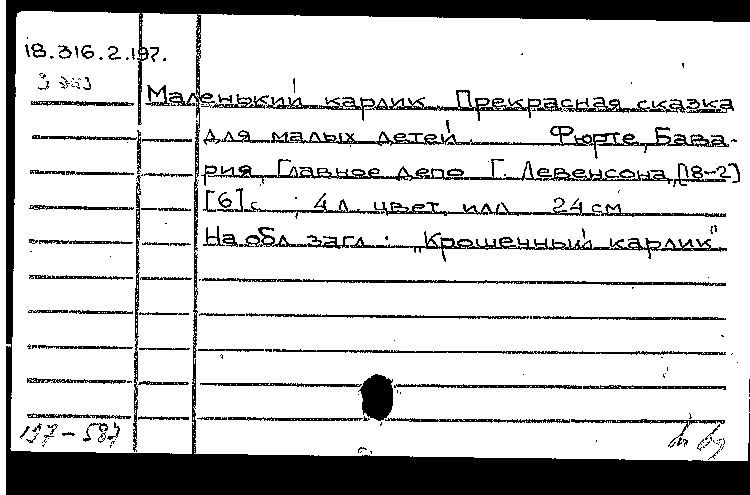 18.316.2.197.
3 экз
Маленький карлик. Прекрасная сказка
для малых детей. Фюрте, Бава-
рия, Главное депо Г. Левенсона, [18-2]
[6] с. 4 л. цвет. илл. 24 см
На обл. загл.: "Крошенный карлик"
197-587